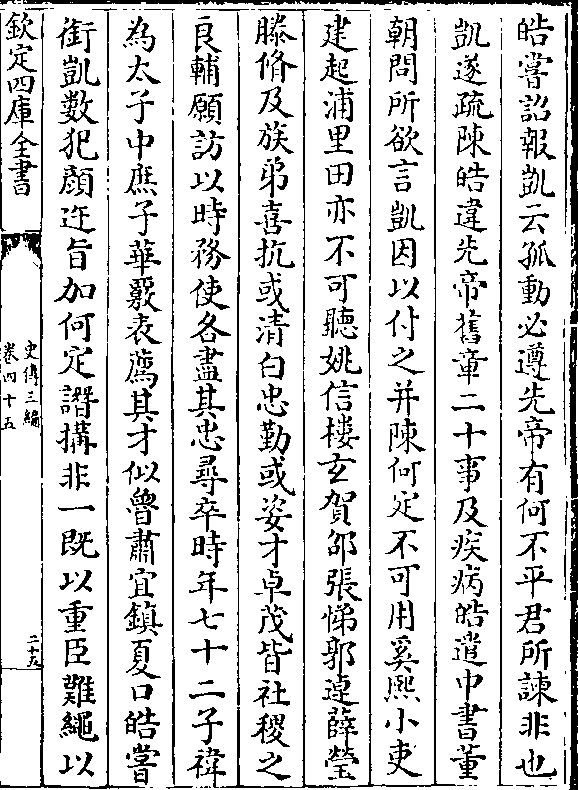 皓嘗詔報凱云孤動必遵先帝有何不平君所諫非也
凱遂疏陳皓違先帝舊章二十事及疾病皓遣中書董
朝問所欲言凱因以付之并陳何定不可用奚熙小吏
建起浦里田亦不可聽姚信樓玄賀邵張悌郭逴薛瑩
滕脩及族弟喜抗或清白忠勤或姿才卓茂皆社稷之
良輔願訪以時務使各盡其忠尋卒時年七十二子禕
為太子中庶子華覈表薦其才似魯肅宜鎮夏口皓嘗
銜凱數犯顔迕旨加何定譖搆非一既以重臣難繩以
欽定四庫全書
史傳三編
卷四十五
二十九